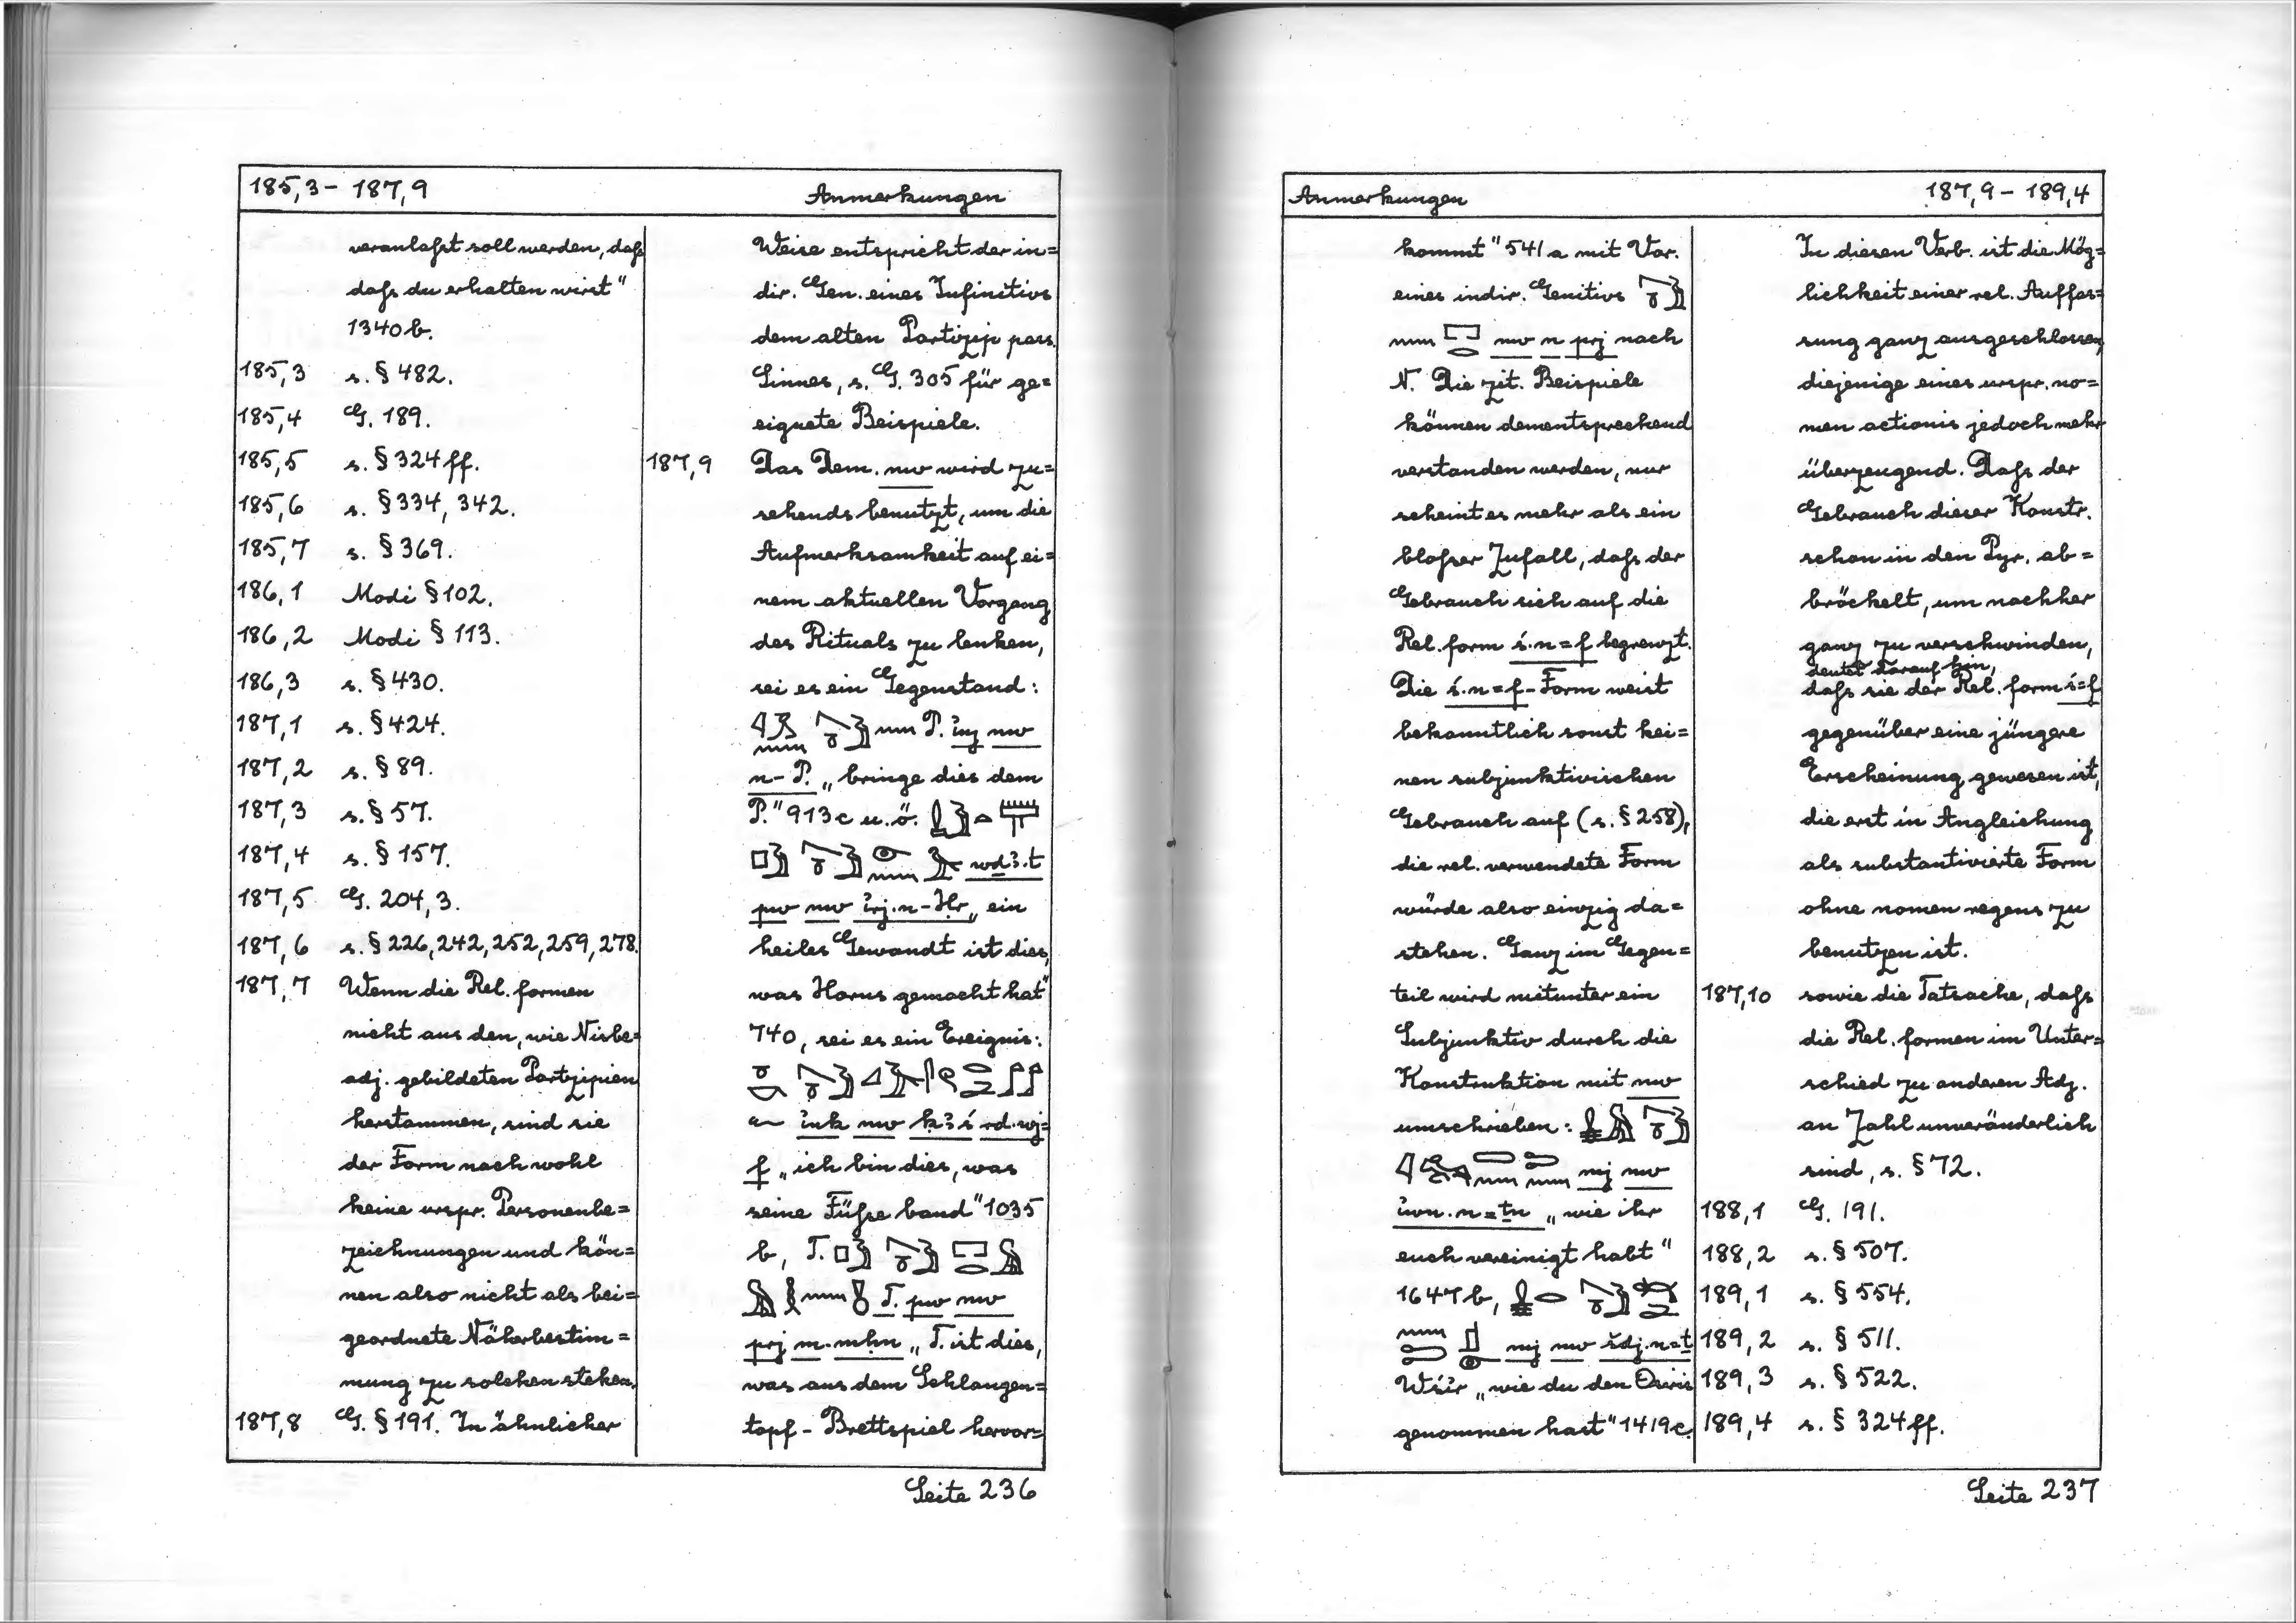 185,3 – 187,9
Anmerkungen
veranlaßt soll werden, daß
daß du erhalten wirst"
1340b.
185,3 s. § 482.
185,4 G. 189.
185,5 s. § 324 ff.
185,6 s. § 334, 342.
185,7 s. § 369.
186,1 Modi § 102.
186,2 Modi § 113.
186,3 s. § 430.
187,1 s. § 424.
187,2 s. § 89.
187,3 s. § 57.
187,4 s. § 157.
187,5 G. 204, 3.
187,6 s. § 226, 242, 252, 259, 278.
187,7 Wenn die Rel. formen
nicht aus den, wie Nisbe=
adj. gebildeten Partizipien
herstammen, sind sie
der Form nach wohl
keine urspr. Personenbe=
zeichnungen und kön=
nen also nicht als bei=
geordnete Näherbestim=
mung zu solchen stehen.
187,8 G. § 191. In ähnlicher
Weise entspricht der in=
dir. Gen. eines Infinitivs
dem alten Partizip pass.
Sinnes, s. G. 305 für ge=
eignete Beispiele.
187,9 Das Dem. nw wird zu=
sehends benutzt, um die
Aufmerksamkeit auf ei=
nem aktuellen Vorgang
des Rituals zu lenken,
sei es ein Gegenstand:
P. ỉnj nw
n-P. „bringe dies dem
P." 913c u.ö.
wḏꜣ.t
pw nw ỉrj.n-Ḥr „ein
heiles Gewandt ist dies,
was Horus gemacht hat"
740, sei es ein Ereignis:
ỉnk nw kꜣś rd.wj=
f „ich bin dies, was
seine Füße band" 1035
b, T.
T. pw nw
prj m-mḥn „T. ist dies,
was aus dem Schlangen=
topf - Brettspiel hervor=
Seite 236
Anmerkungen
187,9 – 189,4
kommt" 541a mit Var.
eines indir. Genitivs
nw n prj nach
N. Die zit. Beispiele
können dementsprechend
verstanden werden, nur
scheint es mehr als ein
bloßer Zufall, daß der
Gebrauch sich auf die
Rel. form ś.n=f begrenzt.
Die ś.n=f-Form weist
bekanntlich sonst kei=
nen subjunktivischen
Gebrauch auf (s. § 258),
die rel. verwendete Form
würde also einzig da=
stehen. Ganz im Gegen=
teil wird mitunter ein
Subjunktiv durch die
Konstruktion mit nw
umschrieben:
mj nw
ỉwn.n=ṯn „wie ihr
euch vereinigt habt"
1647b,
mj nw šdj.n=ṯ
Wśỉr „wie du den Osiris
genommen hast" 1419c.
In diesen Verb. ist die Mög=
lichkeit einer rel. Auffas=
sung ganz ausgeschlossen,
diejenige eines urspr. no=
men actionis jedoch mehr
überzeugend. Daß der
Gebrauch dieser Konstr.
schon in den Pyr. ab=
bröckelt, um nachher
ganz zu verschwinden,
deutet darauf hin,
daß sie der Rel. form ś=f
gegenüber eine jüngere
Erscheinung gewesen ist,
die erst in Angleichung
als substantivierte Form
ohne nomen regens zu
benutzen ist.
187,10 sowie die Tatsache, daß
die Rel. formen im Unter=
schied zu anderen Adj.
an Zahl unveränderlich
sind, s. § 72.
188,1 G. 191.
188,2 s. § 507.
189,1 s. § 554.
189,2 s. § 511.
189,3 s. § 522.
189,4 s. § 324 ff.
Seite 237